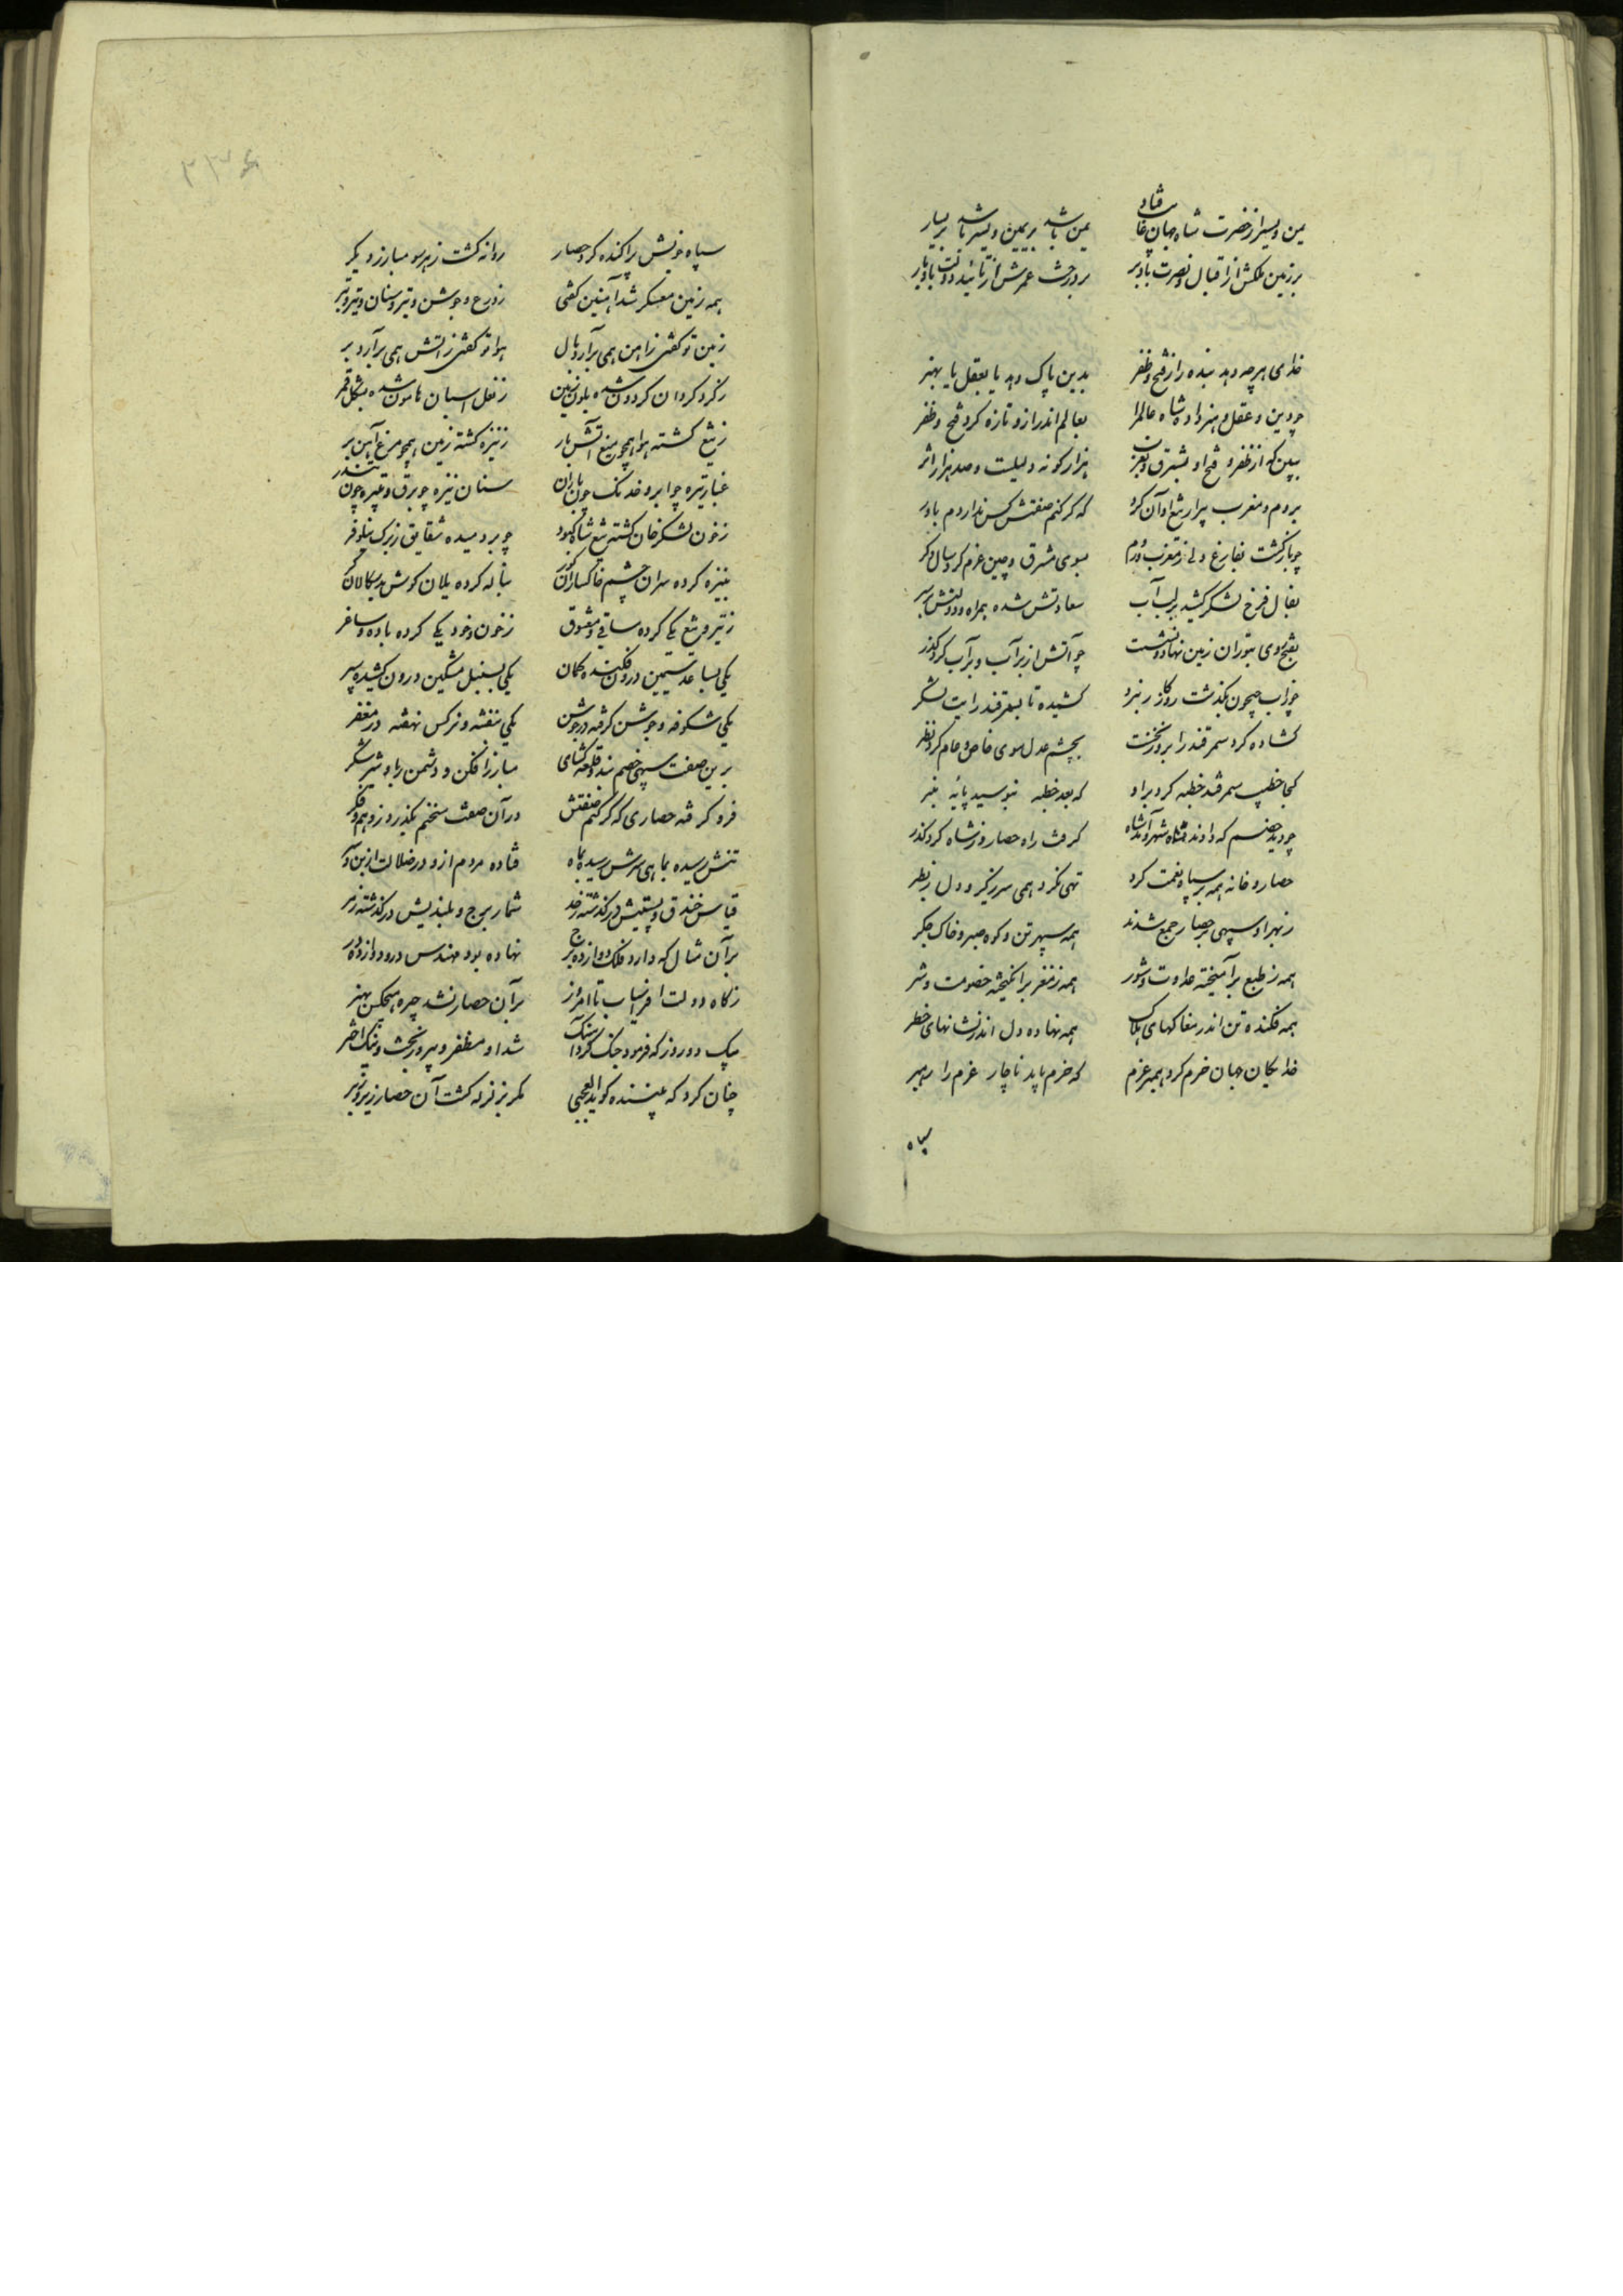 یمن و یسر از حضرت شاه جهان غایب مباد یمن باشد بر یمین و یسر باشد بر یسار
بر زمین ملکش از اقبال و نصرت باد بر بر درخت عمرش از تائید دولت باد بار
خدای هرچه دهد بنده را ز فتح و ظفر بدین پاک دهد یا بعقل یا بهنر
چو دین و عقل و هنر داد شاه عالم را بعالم اندر ازو تازه کرد فتح و ظفر
ببین که از ظفر و فتح او بشرق و بغرب هزار گونه دلیلست و صد هزار اثر
بروم و مغرب پرار تیغ او آن کرد که گر کنم صفتش کس ندارد م باور
چو بازگشت بفارغ دلی ز مغرب و روم بسوی مشرق و چین عزم کرد سال دگر
بفال فرخ لشکر کشید بر لب آب سعادتش شده همراه و دولتش رهبر
بفتح روی بتوران زمین نهاد و نشست چو آتش از بر آب و بر آب کرد گذر
چو زاب جیحون بگذشت روزگار نبرد کشیده تا بسمرقند رایت لشکر
گشاده کرد سمرقند را بروز نخست بچشم عدل سوی خاص و عام کرد نظر
کجا خطیب سمرقند خطبه کرد برا و که بعد خطبه نبوسید پایه منبر
چو دید خصم که دادند شاه شهر آنشاه گرفت راه حصار و ز شاه کرد گذر
حصار و خانه همه بر سپاه نعمت کرد تهی نکرد همی سر ز کبر و دل ز بطر
ز بهر او سپهی بر حصار جمع شدند همه سپهر تن و کوه صبر و خاک جگر
همه ز طبع برآمیخته عداوت و شور همه ز مغز برانگیخته خصومت و شر
همه فکنده تن اندر مغاکهای هلاک همه نهاده دل اندر نشانهای خطر
خدایگان جهان حزم کرد همبر عزم که حزم باید ناچار عزم را رهبر
سپاه
۲۳۶
سپاه خویش پراکنده کرد حصار روانه گشت ز هر سو مبارز دیگر
همه زمین معسکر شد آهنین گفتی ز درع و جوشن و تیر و سنان و تیر و تبر
زمین تو گفتی ز آهن همی برآرد بال هوا تو گفتی ز آتش همی برآرد پر
ز گرد گردان گردون شده بلون زمین ز نعل اسبان هامون شده بشکل قمر
ز تیغ گشته هوا همچو میغ آتش بار ز نیزه گشته زمین همچو مرغ آهن پر
غبار تیره چو ابر و خدنگ چون باران سنان نیزه چو برق و تبیره چون تندر
ز خون لشکر خان گشته تیغ شاه کبود چو بردمیده شقایق ز برگ نیلوفر
بنیزه کرده سران چشم خاکساران کور بناله کرده یلان گوش بدسگالان کر
ز تیر و تیغ یکی کرده ساقی و معشوق ز خون و خود یکی کرده باده و ساغر
یکی بساعد سیمین درون فکنده کمان یکی بسنبل مشکین درون کشیده سپر
یکی شکوفه و جوشن گرفته در جوشن یکی بنفشه و نرگس نهفته در مغفر
برین صفت سپهی خصم بند و قلعه گشای مبارز افکن و دشمن ربا و شیر شکر
فرو گرفته حصاری که گر کنم صفتش در آن صفت سخنم بگذرد ز وهم و فکر
تنش رسیده بماهی سرش رسیده بماه فتاده مردم ازو در ضلالت از بن و سر
قیاس خندق و پستیش در گذشته ز حد شمار برج و بلندیش در گذشته ز مر
بر آن مثال که دارد فلک دوازده برج نهاده بود مهندس درو دوازده در
ز گاه دولت افراسیاب تا امروز بر آن حصار نشد چیره هیچکس بهنر
بیک دو روز که فرمود جنگ کرد آهنگ شد او مظفر و پیروز بخت و نیک اختر
چنان گرد که بیننده گوید العجبی مگر بزلزله گشت آن حصار زیر و زبر